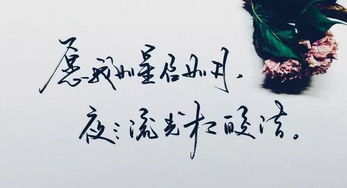 愿我如星君如月，
夜夜流光相皎洁。